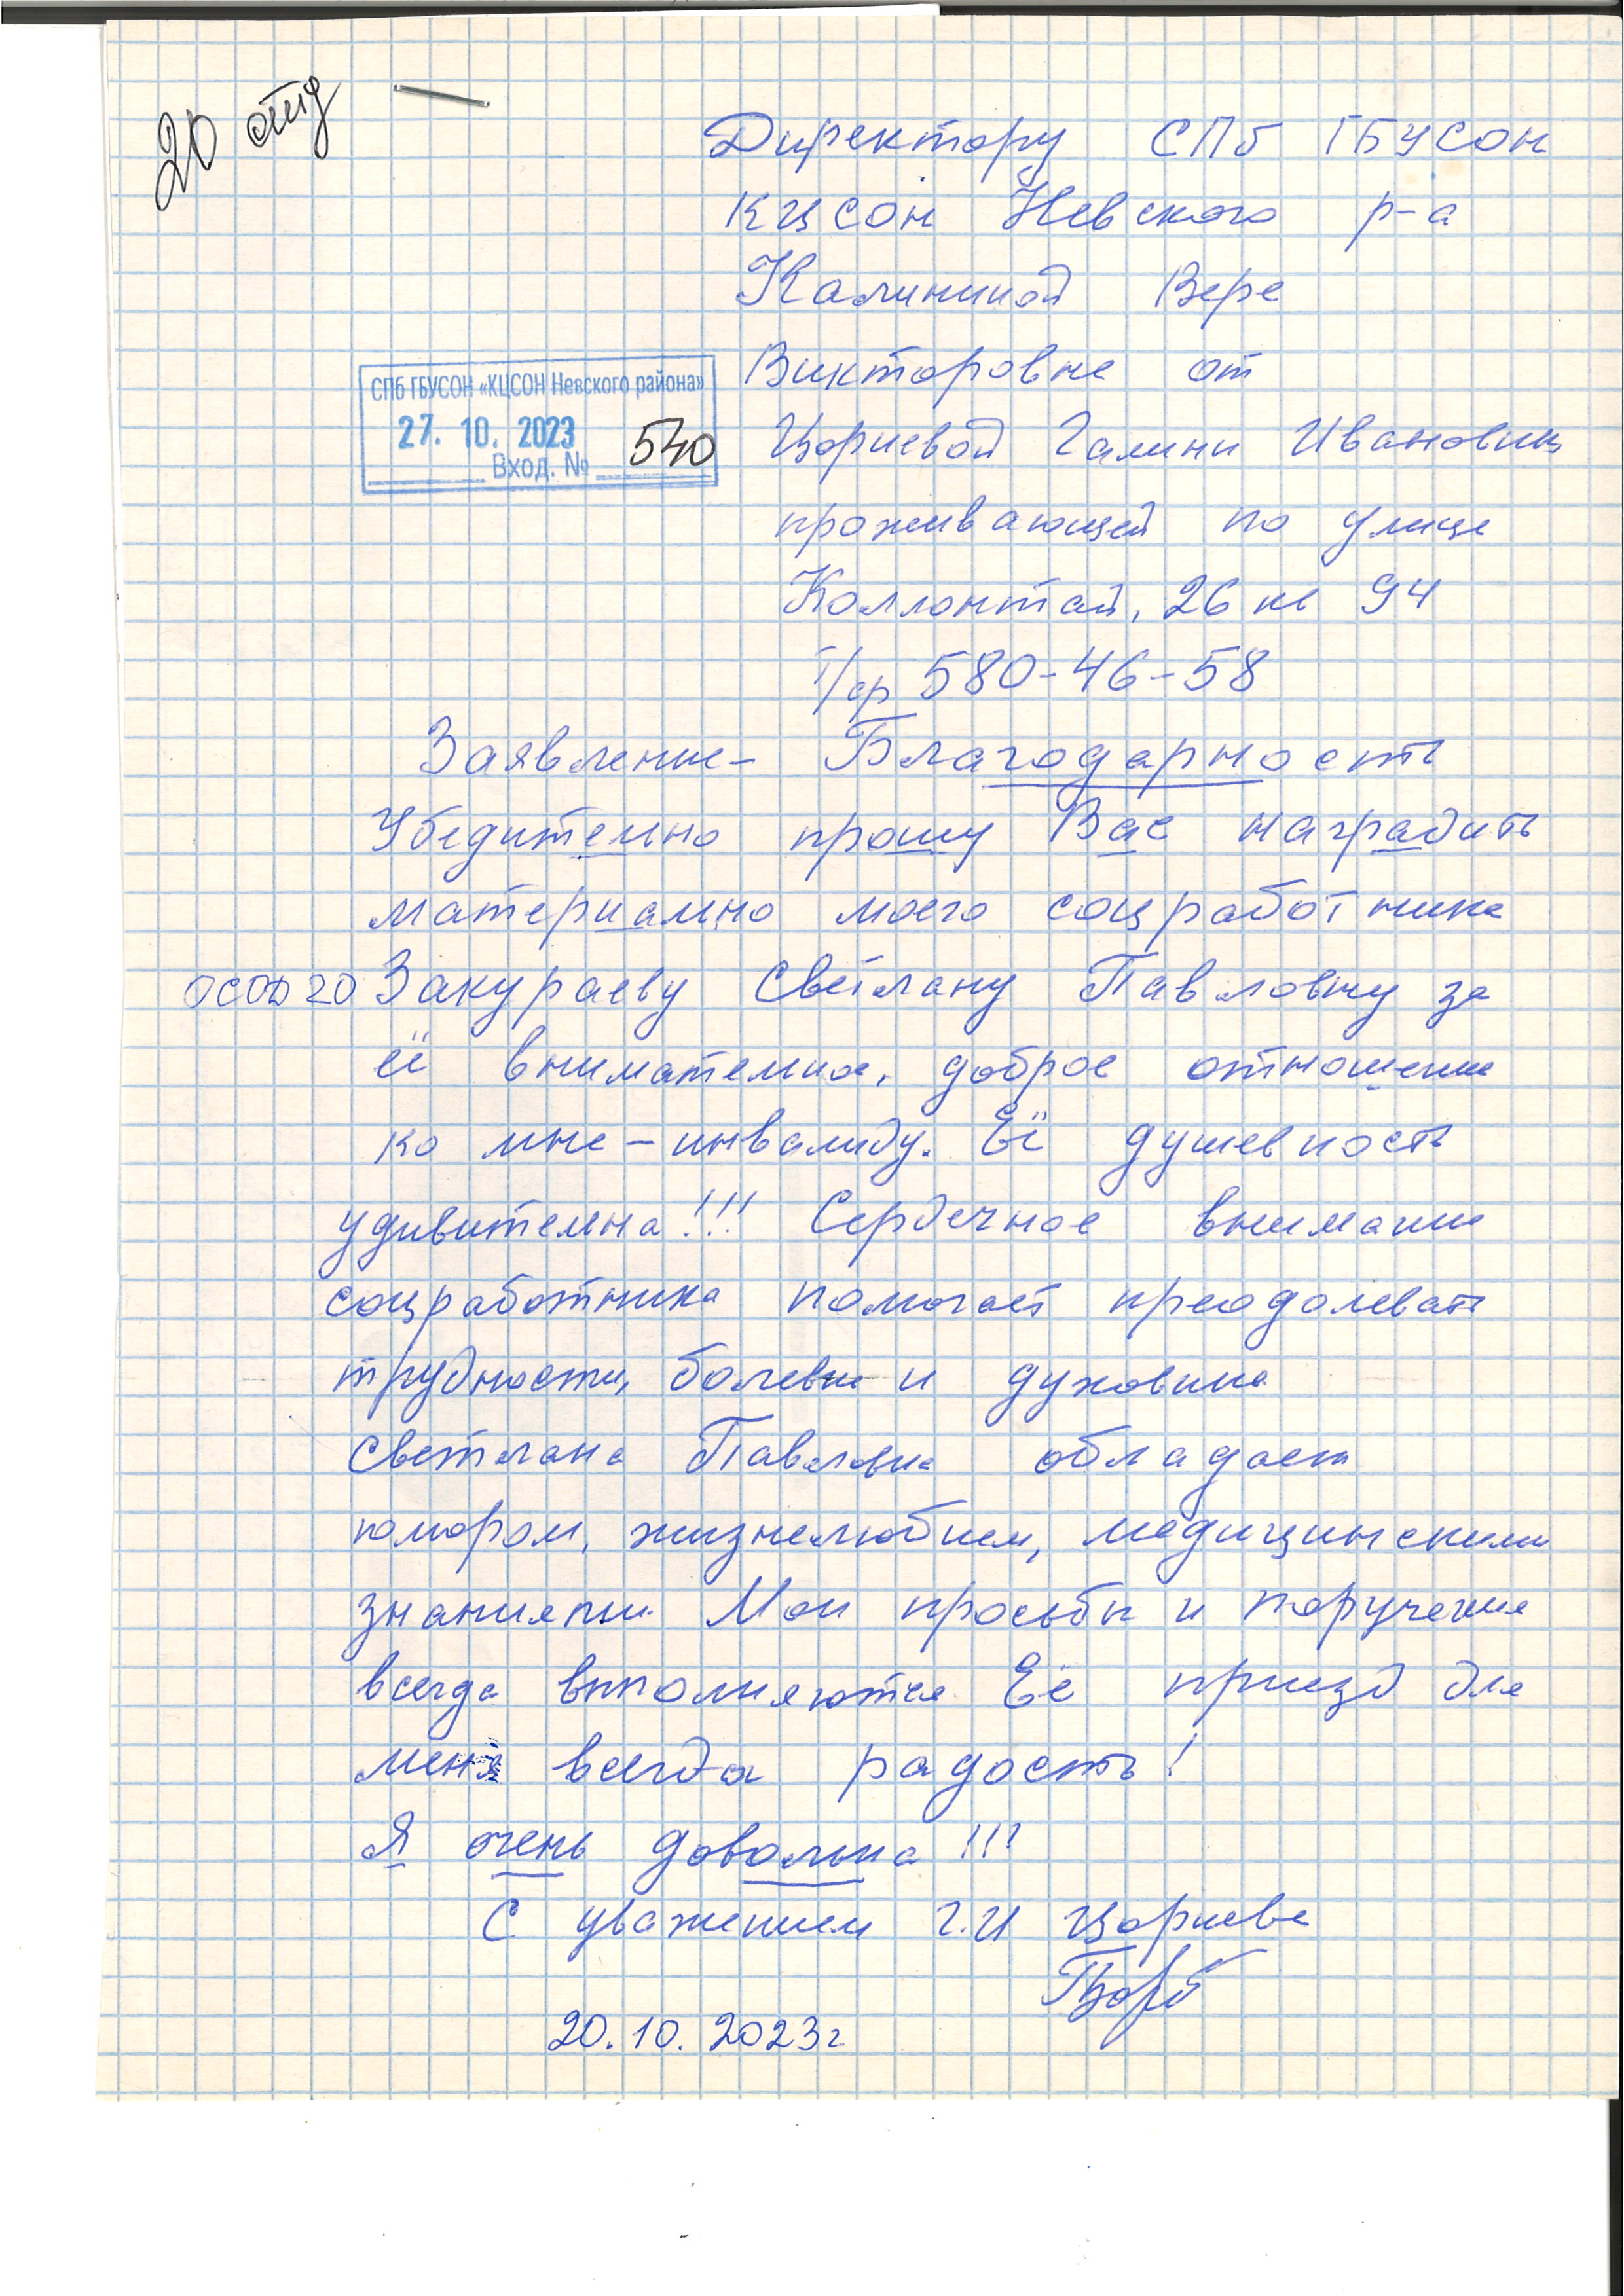 20 отд
Директору СПб ГБУСОН
КЦСОН Невского р-а
Калининой Вере
Викторовне от
СПб ГБУСОН «КЦСОН Невского района»
27. 10. 2023
Вход. № 540
Цориевой Галины Ивановны
проживающей по улице
Коллонтай, 26 кв 94
т/ф 580-46-58
Заявление- Благодарность
Убедительно прошу Вас наградить
материально моего соцработника
ОСОД 20 Закураеву Светлану Павловну за
её внимательное, доброе отношение
ко мне - инвалиду. Её душевность
удивительна!!! Сердечное внимание
соцработника помогает преодолевать
трудности, болезни и духовные
Светлана Павловна обладает
юмором, жизнелюбием, медицинскими
знаниями. Мои просьбы и поручения
всегда выполняются Её приезд для
меня всегда радость!
Я очень довольна!!!
С уважением Г.И Цориева
20.10.2023г